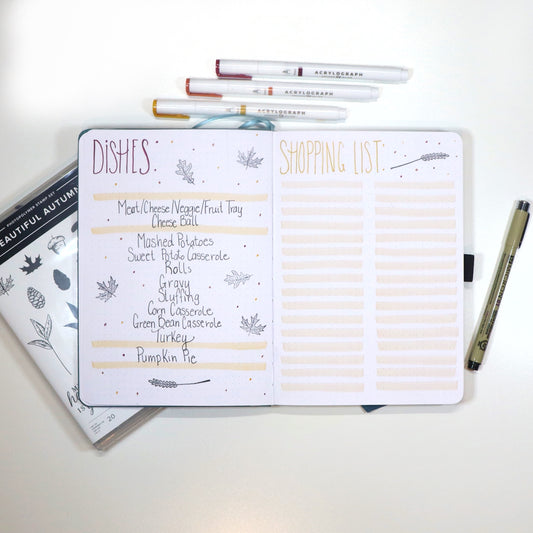 ACRYLOGRAPH
ACRYLOGRAPH
ACRYLOGRAPH
DISHES:
Meat/Cheese/Veggie/Fruit Tray
Cheese Ball
Mashed Potatoes
Sweet Potato Casserole
Rolls
Gravy
Stuffing
Corn Casserole
Green Bean Casserole
Turkey
Pumpkin Pie
SHOPPING LIST:
PHOTOPOLYMER STAMP SET
BEAUTIFUL AUTUMN
20